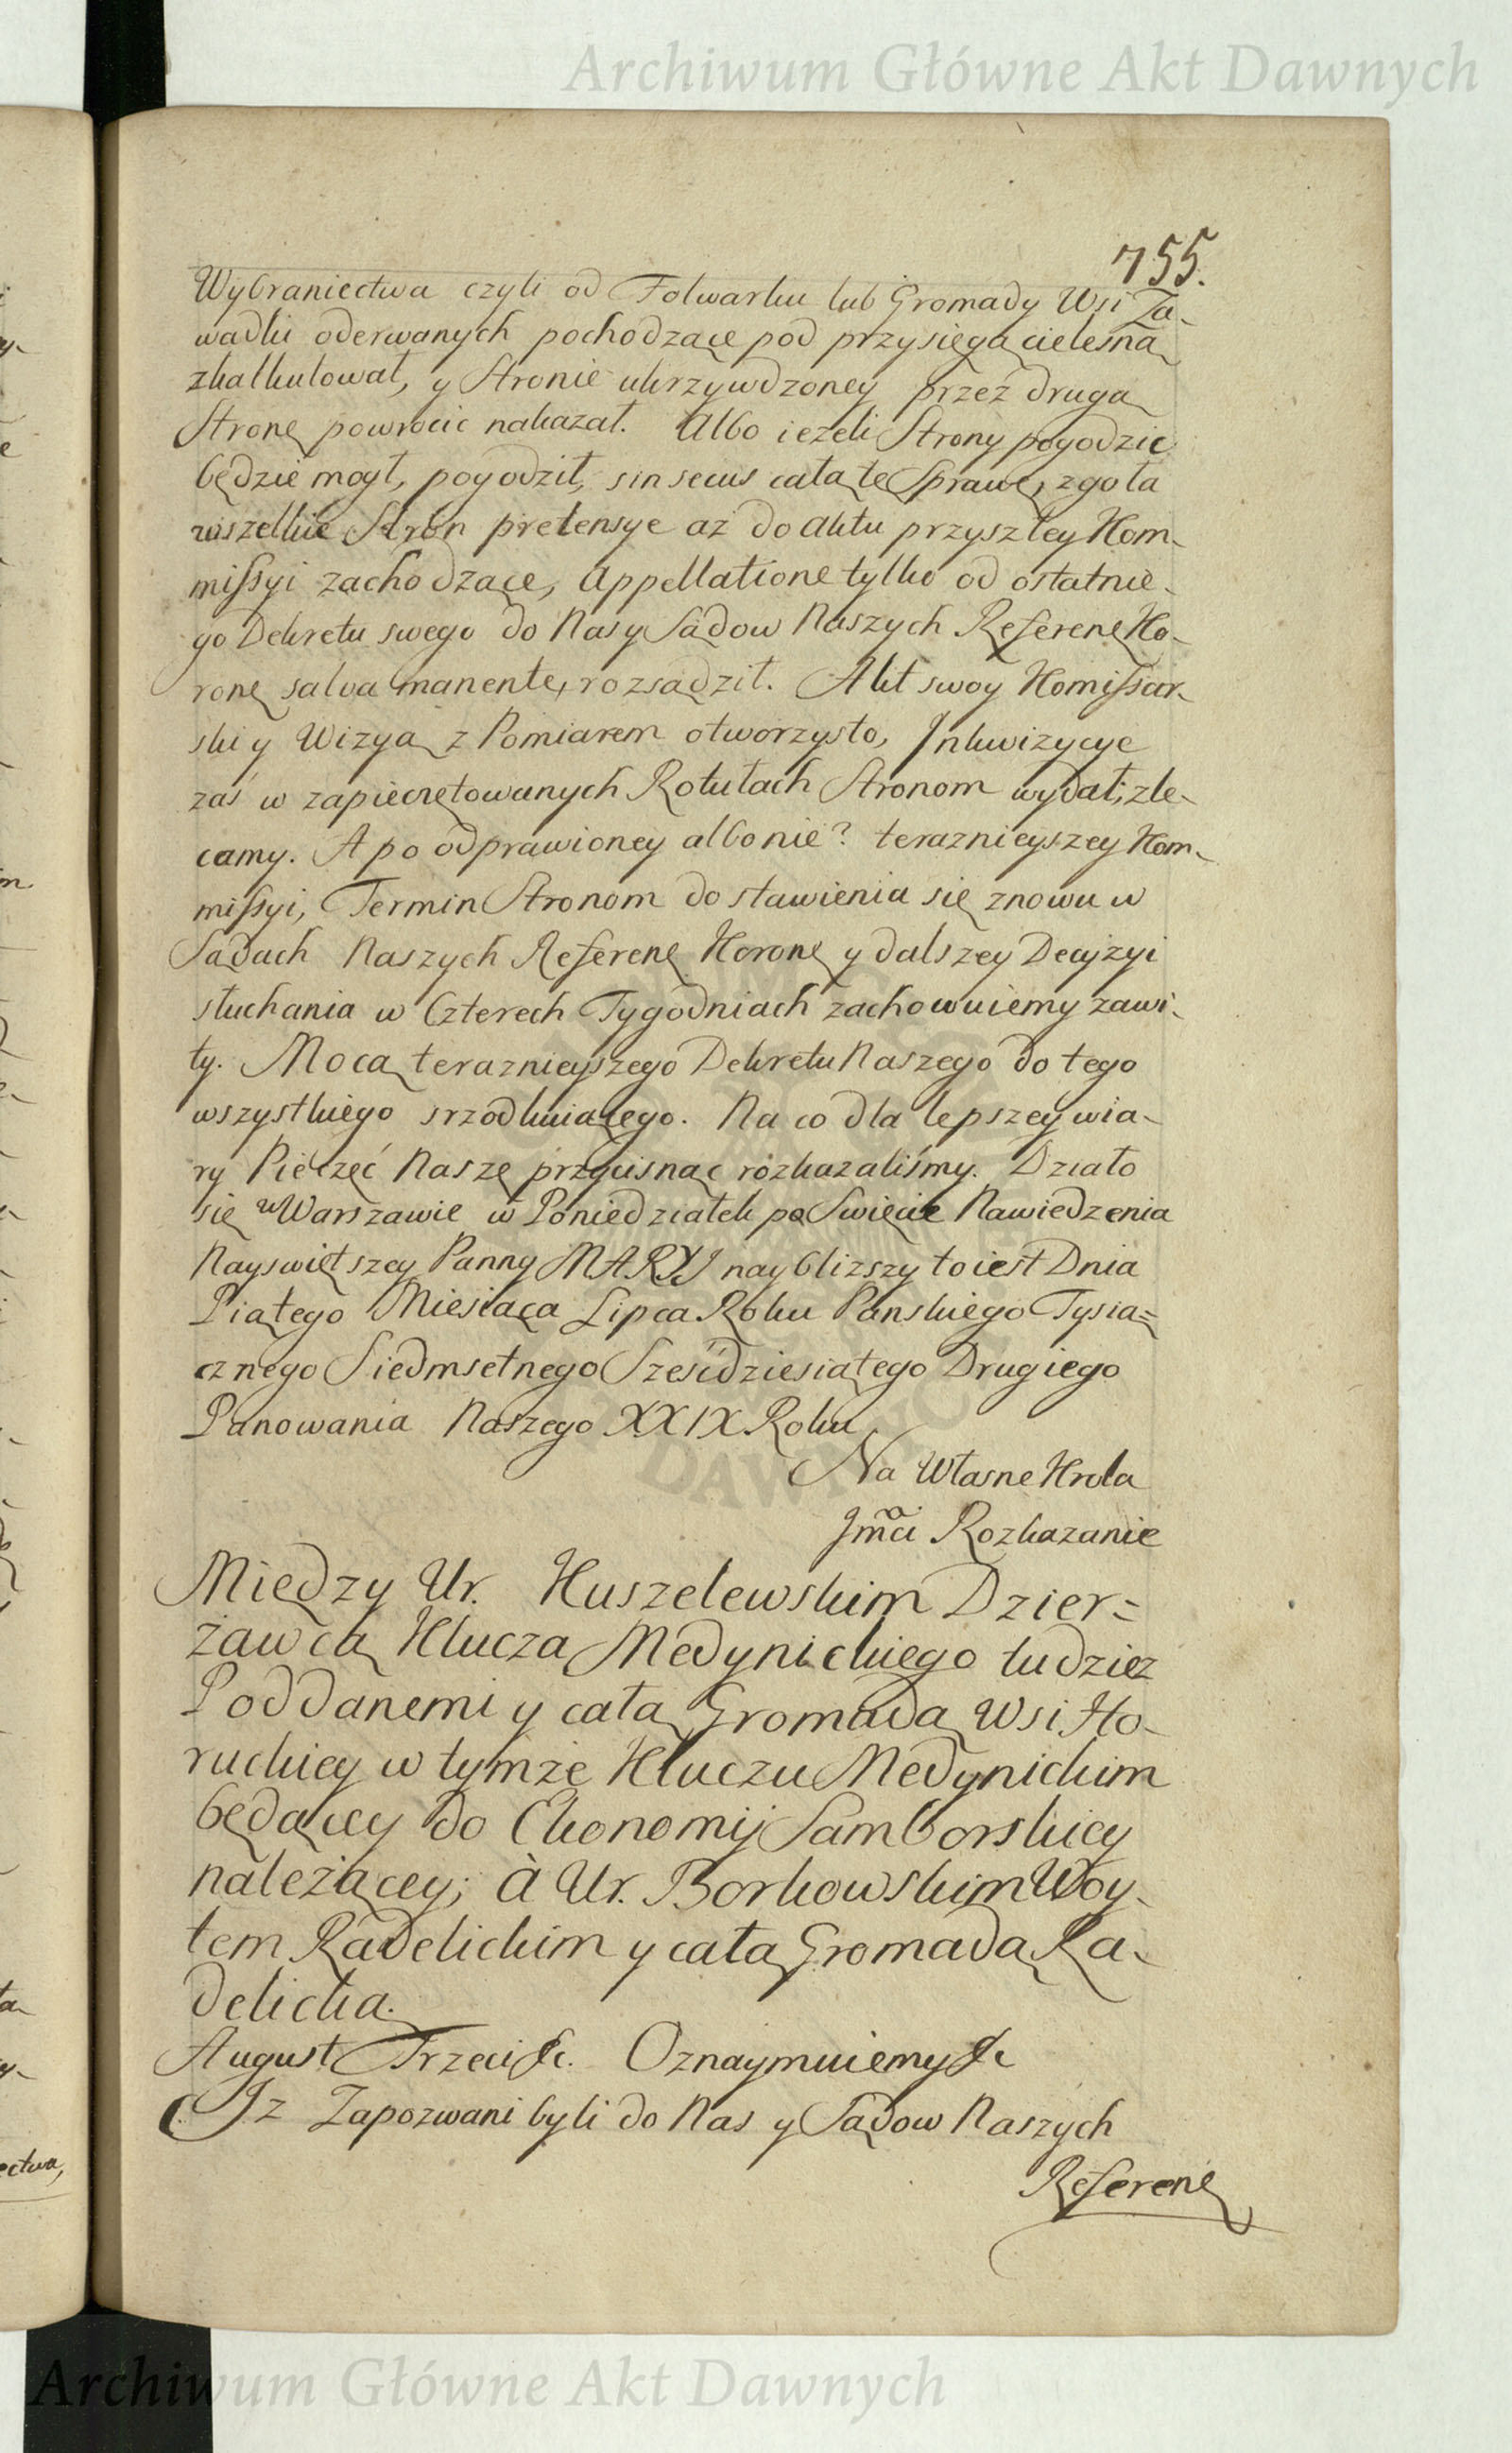 Archiwum Główne Akt Dawnych
755.
Wybraniectwa czyli od Folwarku lub Gromady Wsi Za-
wadki oderwanych pochodzące pod przysięgą cielesną
zkalkulował, y Stronie ukrzywdzoney przez drugą
Stronę powrocic nakazał. Albo ieżeli Strony pogodzic
będzie mogł, pogodził, sin secus całą tę Sprawę, zgoła
wszelkie Stron pretensye aż do Aktu przyszłey Kom-
missyi zachodzące, Appellatione tylko od ostatnie-
go Dekretu swego do Nas y Sądow Naszych Referenę Ko-
ronę salva manente, rozsądził. Akt swoy Komissar-
ski y Wizyą z Pomiarem otworzysto, Inkwizycye
zaś w zapieczętowanych Rotułach Stronom wydał, zle-
camy. A po odprawioney albo nie? teraznieyszey Kom-
missyi, Termin Stronom do stawienia się znowu w
Sądach Naszych Referenę Koronę y dalszey Decyzyi
słuchania w Czterech Tygodniach zachowuiemy zawi-
ty. Mocą teraznieyszego Dekretu Naszego do tego
wszystkiego srzodkuiącego. Na co dla lepszey wia-
ry Pieczęć Naszę przycisnąć rozkazaliśmy. Działo
się w Warszawie w Poniedziałek po Swięcie Nawiedzenia
Nayswiętszey Panny MARYI naybliższy to iest Dnia
Piątego Miesiąca Lipca Roku Panskiego Tysią=
cznego Siedmsetnego Sześćdziesiątego Drugiego
Panowania Naszego XXIX Roku
Na Własne Krola
Jmci Rozkazanie
Między Ur. Kuszelewskim Dzier=
żawcą Klucza Medynickiego tudzież
Poddanemi y całą Gromadą Wsi Ho-
ruckiey w tymże Kluczu Medynickim
będącey do Ekonomij Samborskiey
należącey; à Ur. Borkowskim Woy-
tem Radelickim y całą Gromadą Ra-
delicką.
August Trzeci &c. Oznaymuiemy &c
Iz Zapozwani byli do Nas y Sądow Naszych
Referenę
Archiwum Główne Akt Dawnych